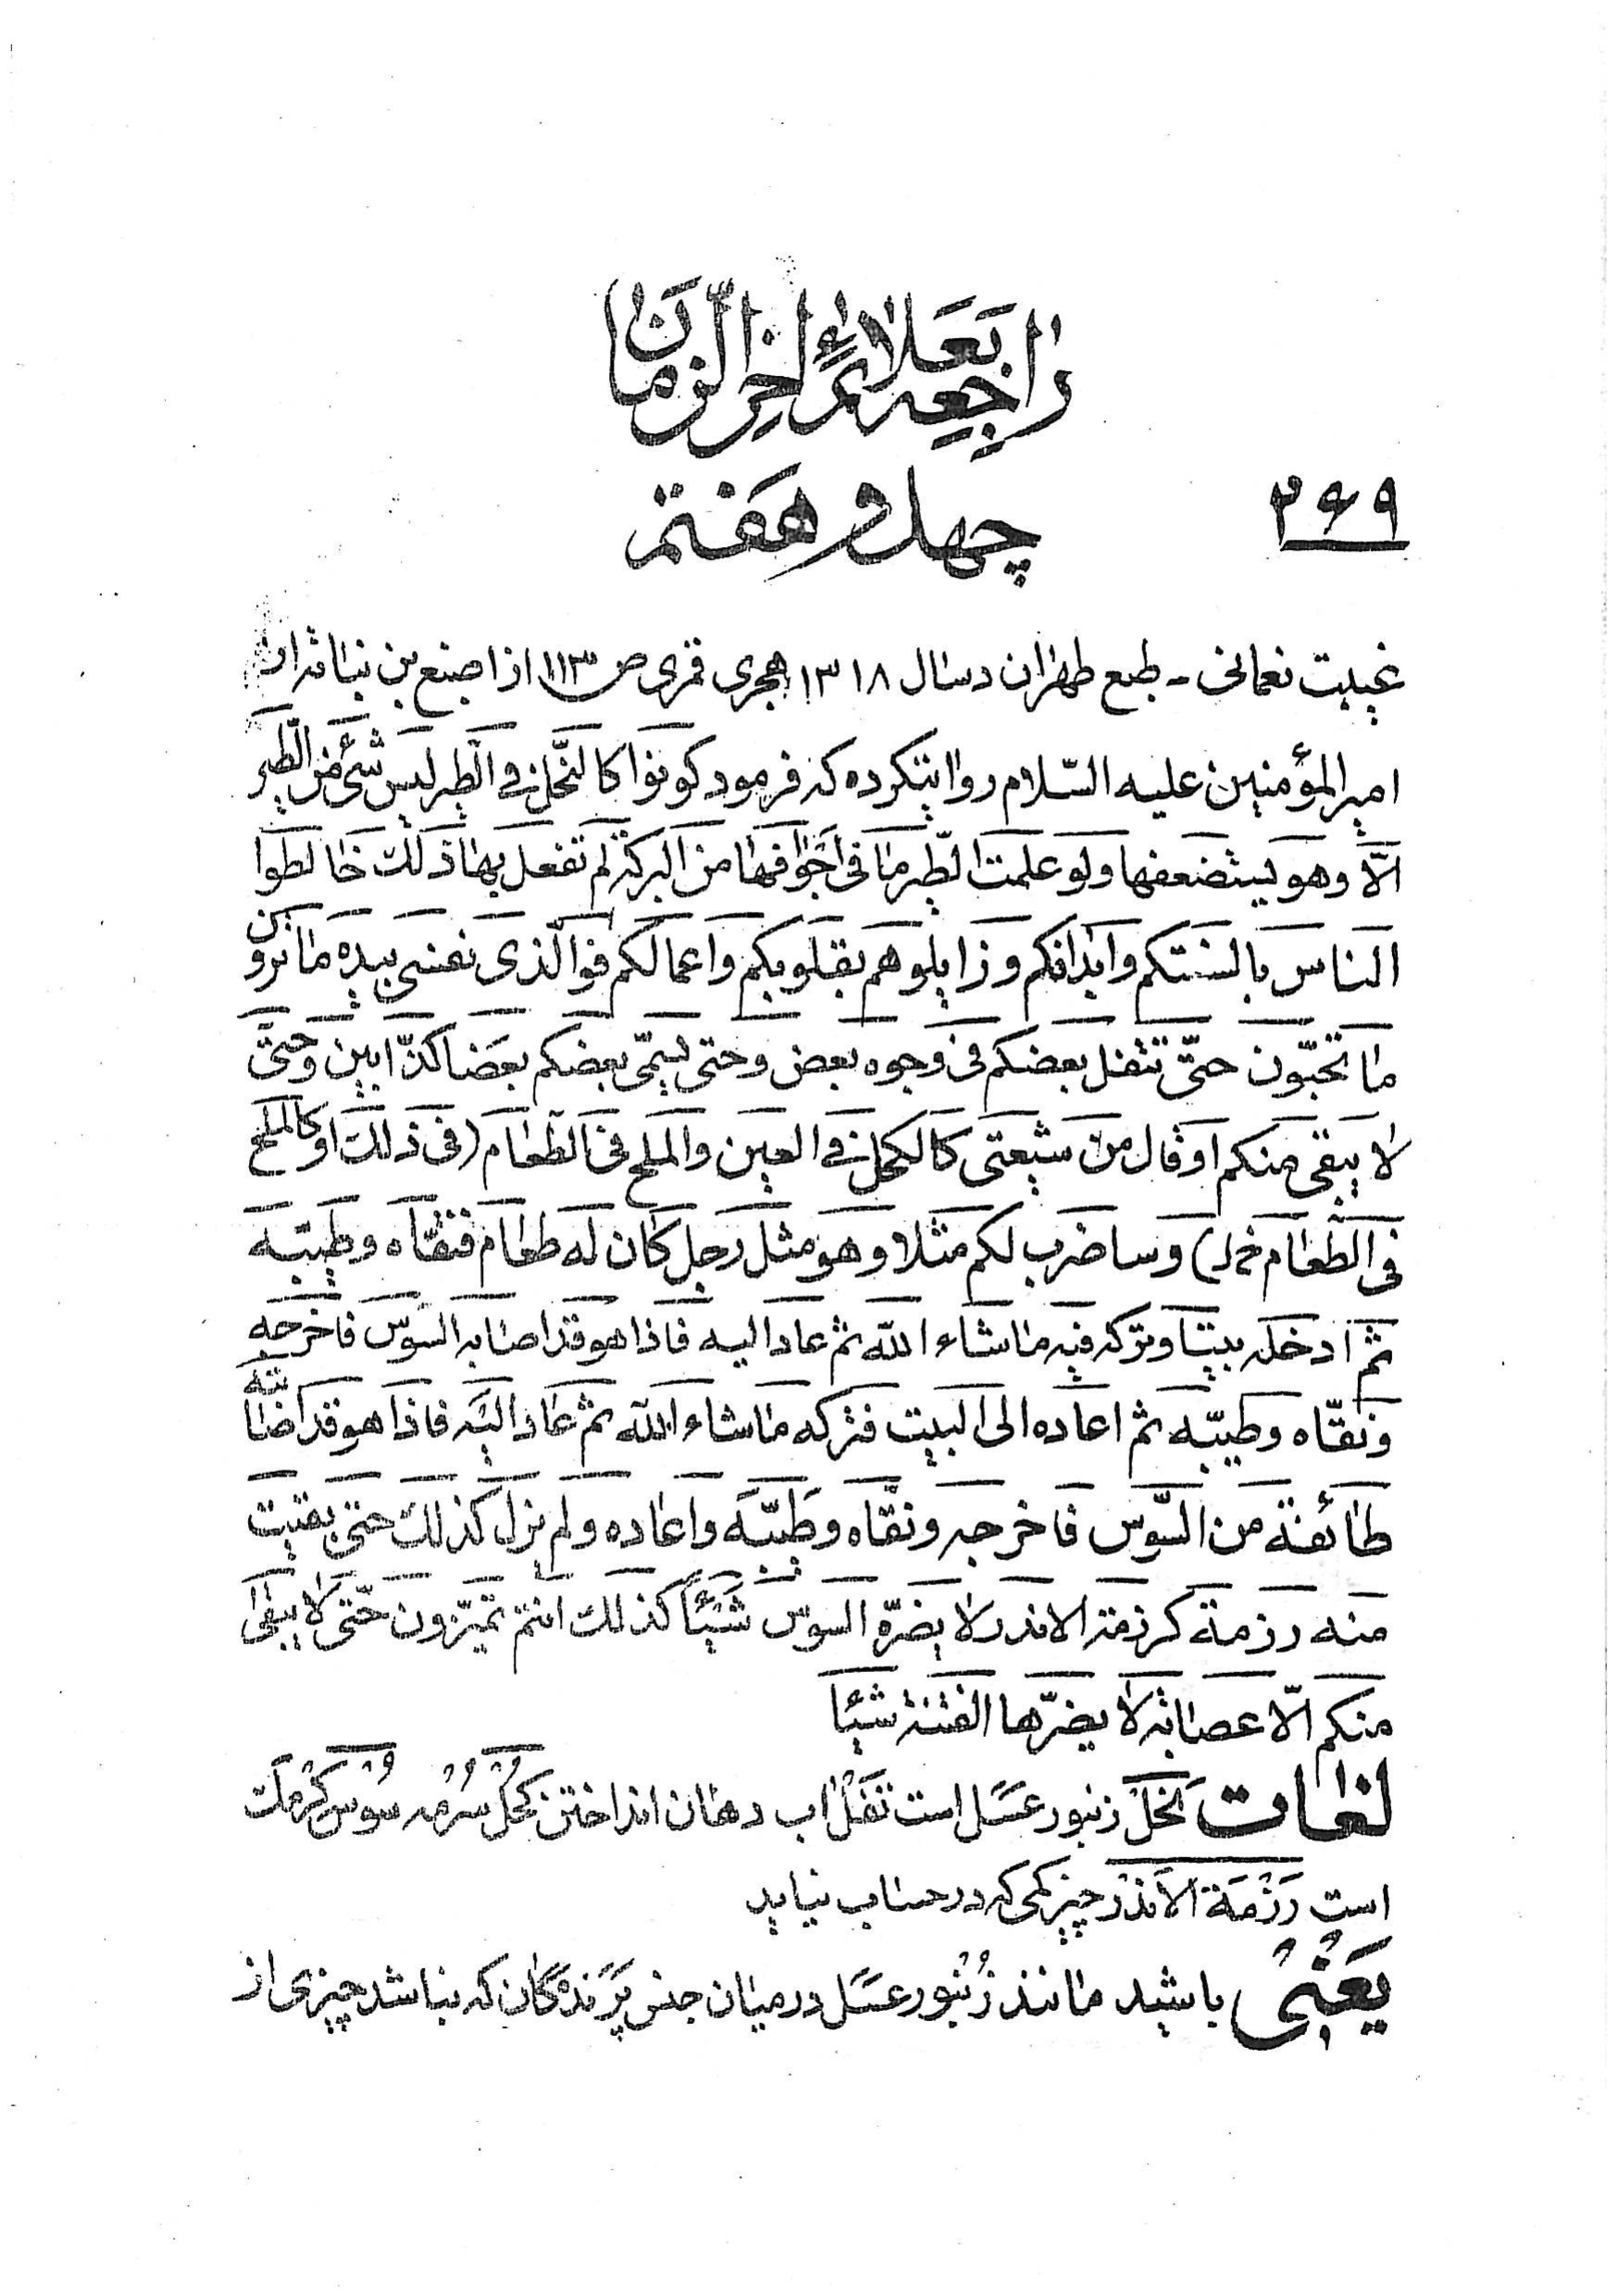 راجعه بعلائم آخر الزمان
۲۶۹
چهل و هفتم
غیبت نعمانی - طبع طهران در سال ۱۳۱۸ هجری قمری ص ۱۱۳ از اصبغ بن نباته از
امیر المؤمنین علیه السّلام روایتکرده که فرمود کونوا کالنّحل فی الطّیر لیس شیء من الطّیر
الّا وهو یستضعفها ولو علمت الطّیر ما فی اجوافها من البرکة لم تفعل بها ذلک خالطوا
الناس بالسنتکم وابدانکم وزایلوهم بقلوبکم واعمالکم فوالّذی نفسی بیده ما ترون
ما تحبّون حتّی یتفل بعضکم فی وجوه بعض وحتی یسمّی بعضکم بعضا کذّابین وحتّی
لا یبقی منکم او قال من شیعتی کالکحل فی العین والملح فی الطّعام (فی ذلک او کالملح
فی الطّعام خ ل) وساضرب لکم مثلا وهو مثل رجل کان له طعام فنقّاه وطیّبه
ثم ادخله بیتا وترکه فیه ما شاء اللّه ثم عاد الیه فاذا هو قد اصابه السّوس فاخرجه
ونقّاه وطیّبه ثم اعاده الی البیت فترکه ما شاء اللّه ثم عاد الیه فاذا هو قد اصابته
طائفة من السّوس فاخرجه ونقّاه وطیّبه واعاده ولم یزل کذلک حتی بقیت
منه رزمة کرزمة الاندر لا یضرّه السوس شیئا کذلک انتم تمیّزون حتّی لا یبقی
منکم الّا عصابة لا یضرّها الفتنة شیئا
لغات نحل زنبور عسل است تفل اب دهان انداختن کحل سرمه سوس کرمک
است رزمة الاندر چیز کمی که در حساب نیاید
یعنی باشید مانند زنبور عسل در میان جنس پرندگان که نباشد چیزی از